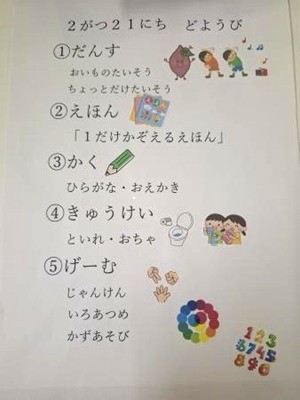 2がつ21にち　どようび
①だんす
おいものたいそう
ちょっとだけたいそう
②えほん
「1だけかぞえるえほん」
③かく
ひらがな・おえかき
④きゅうけい
といれ・おちゃ
⑤げーむ
じゃんけん
いろあつめ
かずあそび